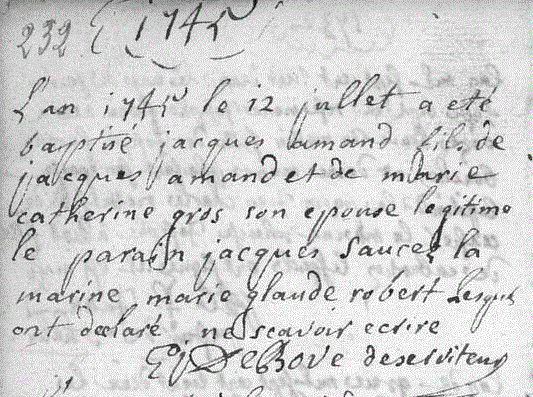 232 1745
L'an 1745 le 12 jullet a eté
baptisé jacques amand fils de
jacques amand et de marie
catherine gros son epouse legitime
le parain jacques saucez la
marine marie glaude robert lesquels
ont declaré ne scavoir ecrire
DeBove deserviteur